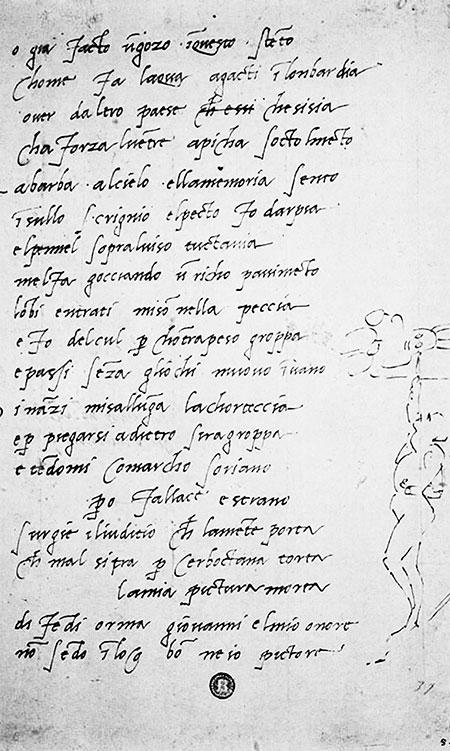 o gia facto ūgozo īquesto stēto
chome fa laqua agacti ī lonbardia
over daltro paese ch essi chesisia
cha forza lvētre apicha sottolmēto
abarba alcielo ellamemoria sento
īsullo scrignio elpecto fo darpia
elpennel sopraluiso tuctavia
melfa gocciando ū richo pavimēto
lobi entrati misō nella peccia
e fo delcul p chōtrapeso groppa
e passi sēza gliochi muovo īvano
inazi misallūga lachorteccia
e p piegarsi adietro siragroppa
e tēdomi comarcho soriano
po fallace e strano
surgie iliudicio ch lamēte porta
ch mal si tra p cerboctana torta
lamia pictura morta
di fedi orma giovanni elmio onore
nō sēdo ī loco bō ne io pictore